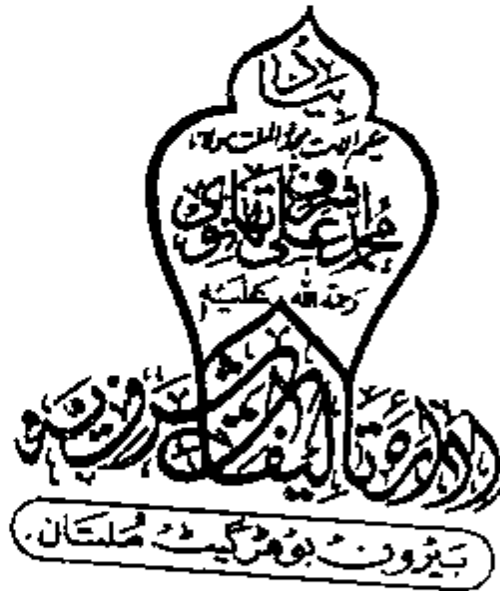 بیاد
حکیم الامت مجدد الملت مولانا
محمد اشرف علی تھانوی
رحمة اللہ علیہ
ادارہ تالیفات اشرفیہ
بیرون بوھڑ گیٹ مُلتان